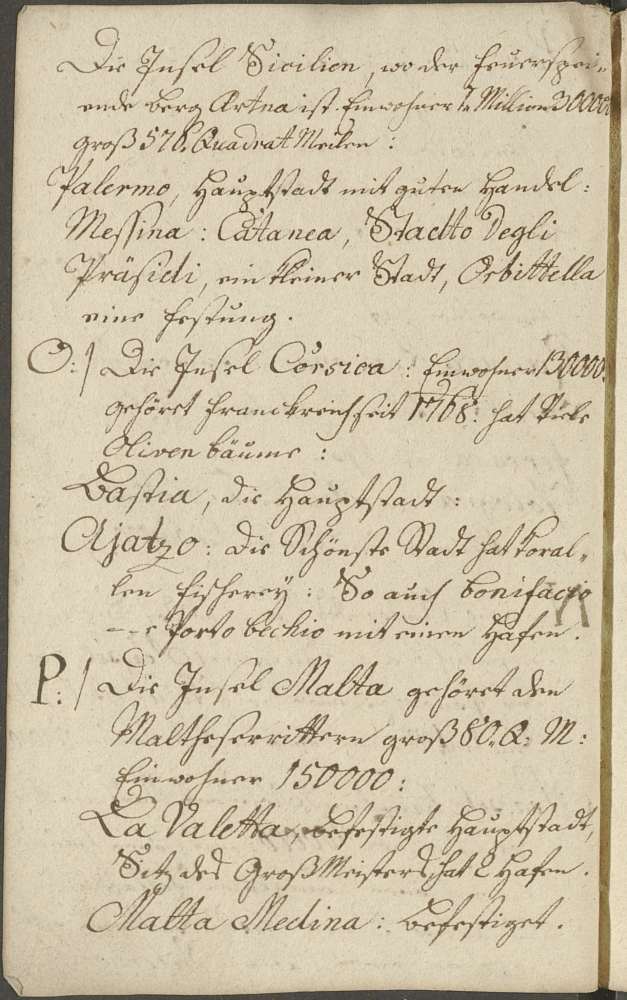 Die Insel Sicilien, wo der feuerspei„
ende berg Ærtna ist. Einwohner 1. Million 300000
groß 576. Quadrat Meilen:
Palermo, Hauptstadt mit guten Handel:
Messina: Catanea, Stadtto Degli
Präsidi, ein kleiner Stadt, Orbittella
eine Festung.
O:/ Die Insel Corsica: Einwohner 130000.
gehöret Franckreich seit 1768. hat viele
Oliven bäume:
Bastia, die Hauptstadt:
Ajatzo: die Schönste Stadt hat koral„
len Fischerey: So auch bonifacio
e Porto bechio mit einen Hafen.
P:/ Die Insel Malta gehöret den
Maltheserrittern groß 80. Q: M:
Einwohner 150000:
La Valetta, befestigte Hauptstadt,
Sitz des Groß Meisters, hat 2 Hafen.
Malta Medina: befestiget.